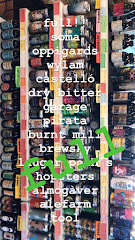 full!!
soma
oppigards
wylam
castelló
dry & bitter
garage
pirata
burnt mill
brewsky
hoppsters
almogaver
alefarm
tool
FULL